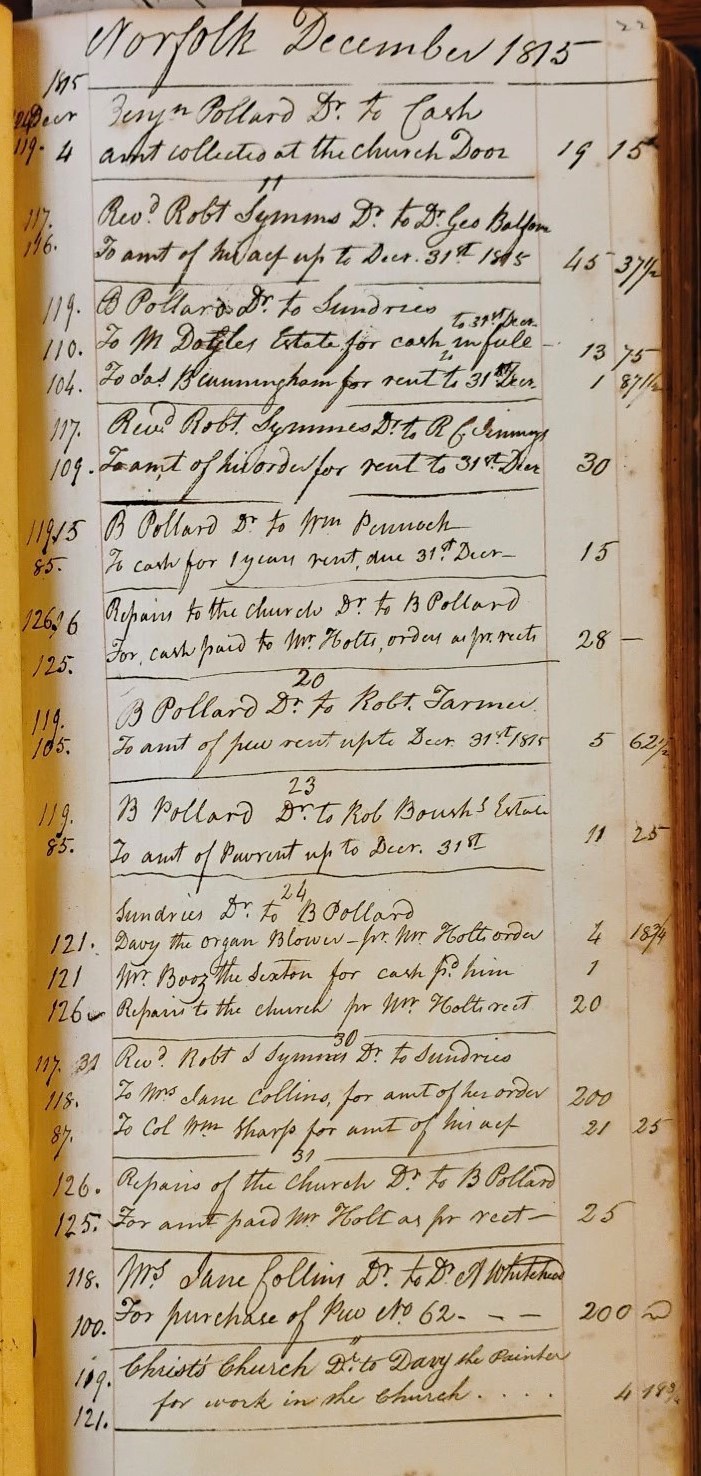 22
Norfolk December 1815
1815
Decr Benjn Pollard Dr to Cash
119. 4 amt collected at the church Door 19 15
11
117. Revd Robt Symms Dr to Dr Geo Balfour
116. To amt of his acct up to Decr. 31st 1815 45 37 1/2
119. B Pollard Dr to Sundries
to 31st Decr
110. To M Estate for cash in full 13 75
104. To Jas B Cunningham for rent to 31st Decr 1 87 1/2
117. Revd Robt. Symmes Dr to R C Jennings
109. To amt of his order for rent to 31st Decr 30
119. 15 B Pollard Dr to Wm Pennock
85. To cash for 1 years rent, due 31st Decr — 15
126. 16 Repairs to the church Dr to B Pollard
125. For cash paid to Mr Holts, orders as pr. rects 28 —
20
119. B Pollard Dr to Robt. Farmer
105. To amt of pew rent upto Decr. 31st 1815 5 62 1/2
23
119. B Pollard Dr to Rob Boushs Estate
85. To amt of Pewrent up to Decr. 31st 11 25
24
Sundries Dr to B Pollard
121. Davy the organ Blower — pr. Mr Holts order 4 18 3/4
121 Mr. Booz the Sexton for cash pd him 1
126 Repairs to the church pr Mr Holts rect 20
30
117. 31 Revd. Robt S Symmes Dr to Sundries
118. To Mrs Jane Collins, for amt of her order 200
87. To Col Wm Sharp for amt of his acct 21 25
31
126. Repairs of the Church Dr to B Pollard
125. For amt paid Mr Holt as pr rect — 25
118. Mrs Jane Collins Dr to Dr A Whitehead
100. For purchase of Pew No 62 - - - 200
119. Christ's Church Dr to Davy the Painter
121. for work in the Church . . . . 4 18 3/4